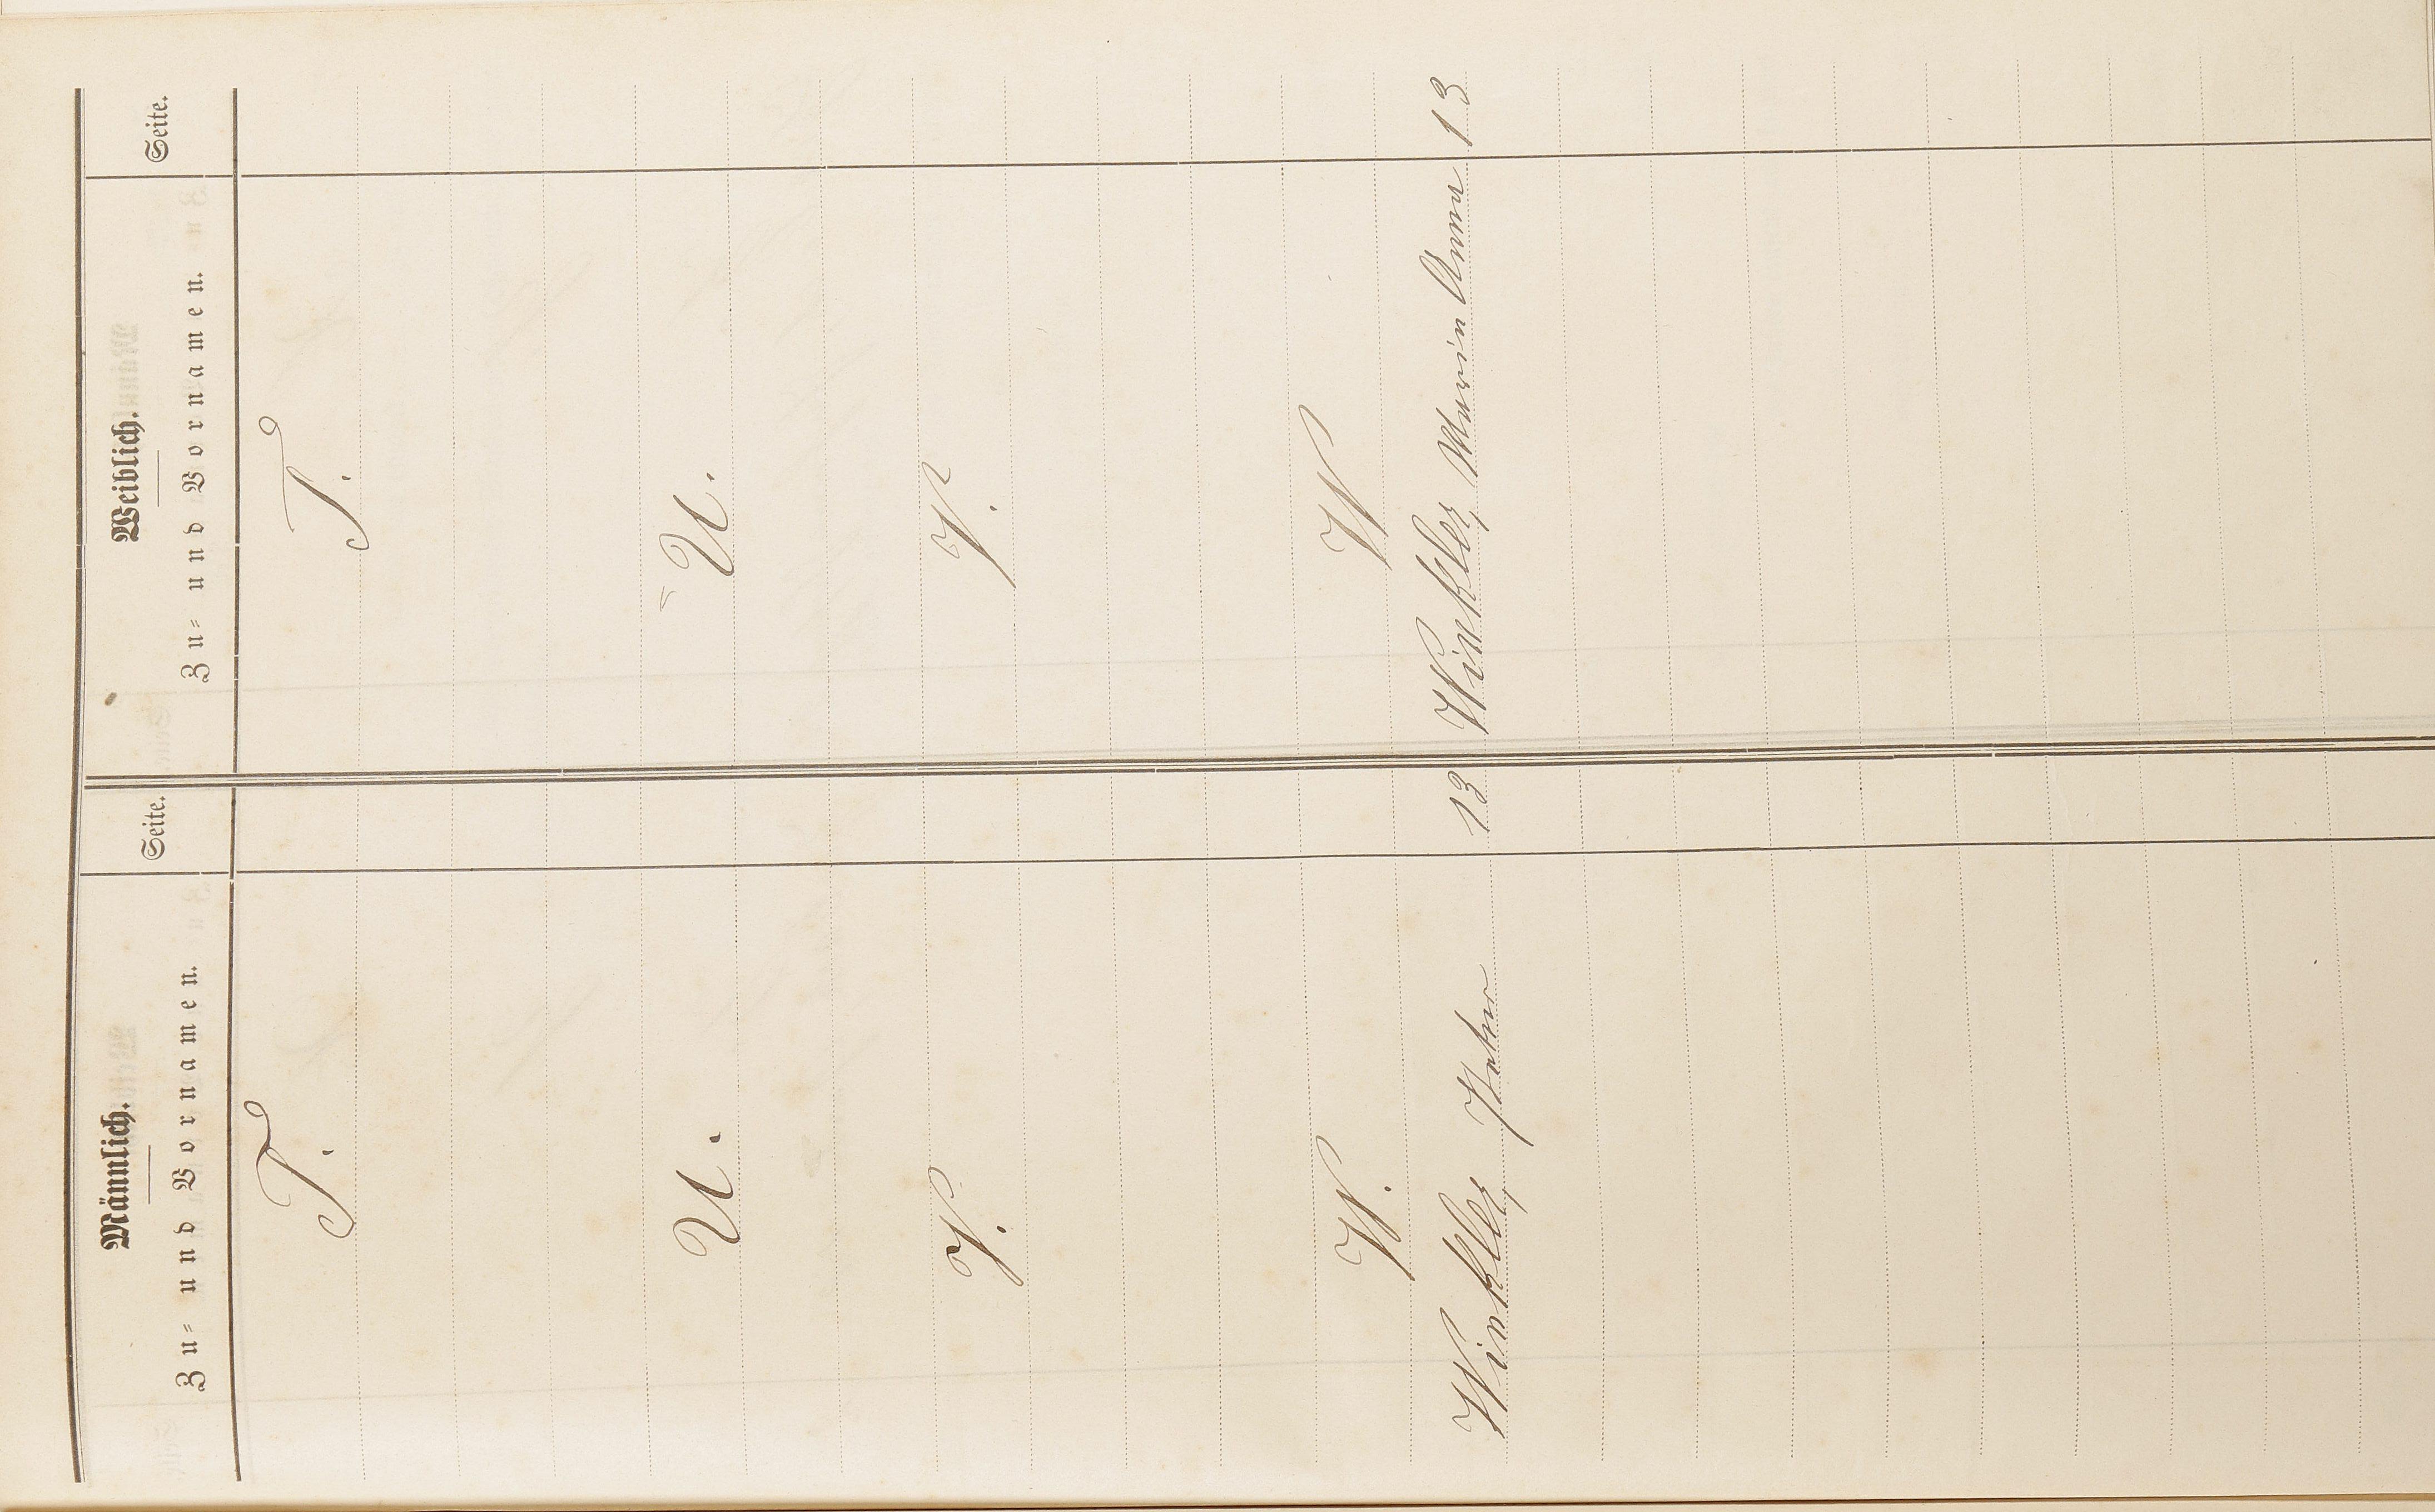 Männlich.
Zu- und Vornamen.
Seite.
T.
U.
V.
W.
Winkler, Peter 13
Weiblich.
Zu- und Vornamen.
Seite.
T.
U.
V.
W
Winkler, Maria Anna 13